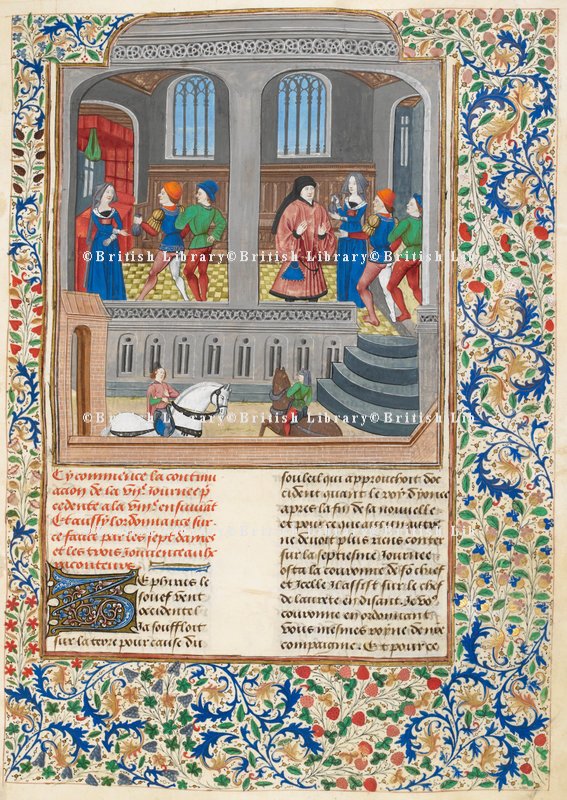 ©British Library©British Library©British Lib
©British Library©British Library©British Lib
Cy commence la continu
acion de la vije journee p
cedente a la viije ensuivāt
Et aussy lordonnance sur
ce faicte par les sept dames
et les trois
Zephirus le
souef vent
occidentel
ja souffloit
sur la terre pour cause du
souleil qui approuchoit doc
cident quant le roy dyonee
apres la fin de sa nouvelle
et pource que aucun autre
ne devoit plus riens conter
sur la septiesme journee
osta la couronne de so chief
et icelle il assist sur le chief
de laurete en disant Je vo9
couronne en ordonnant
vous mesmes royne de nre
compaignie. Et pour ce